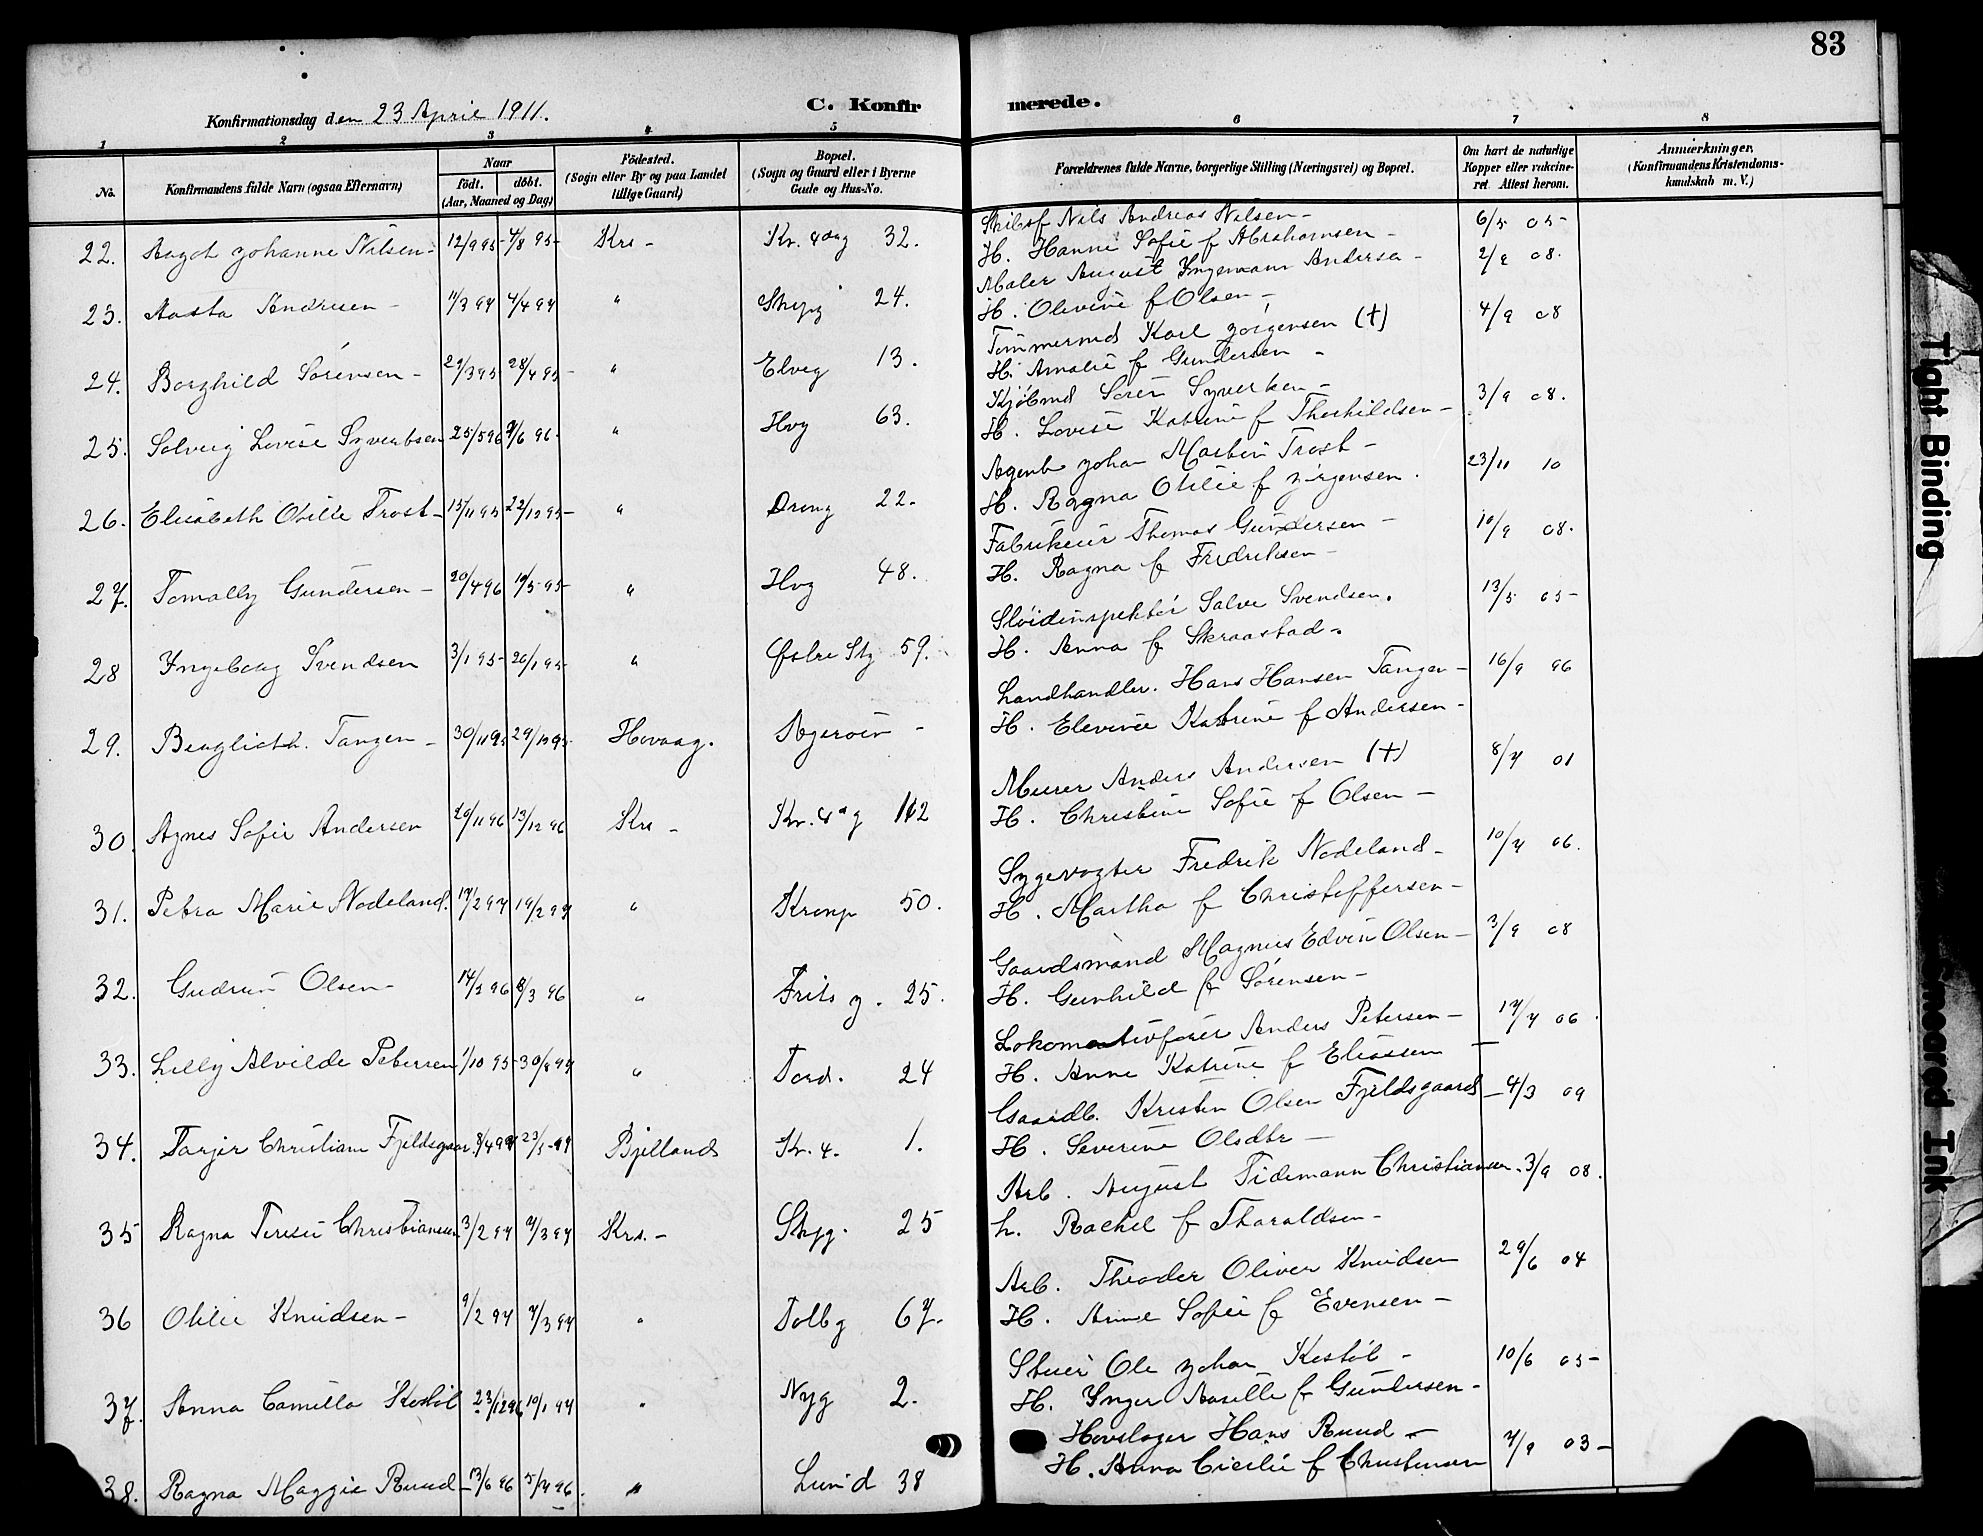 83
C. Konfirmerede.
Konfirmationsdag den 23 April 1911.
1 2 3 4 5 6 7 8
No.
Konfirmandens fulde Navn (ogsaa Efternavn)
Naar
födt. döbt.
(Aar, Maaned og Dag)
Födested.
(Sogn eller By og paa Landet
tillige Gaard)
Bopæl.
(Sogn og Gaard eller i Byerne
Gade og Hus-No.
Forældrenes fulde Navne, borgerlige Stilling (Næringsvei) og Bopæl.
Om havt de naturlige
Kopper eller vaksine-
ret. Attest herom.
Anmærkninger.
(Konfirmandens Kristendoms-
kundskab m. V.)
22. Aagot Johanne Nilsen - 12/9 95 Krs - 32.
Nils Andreas Nilsen -
H. Hanne Sofie f Abrahamsen - 6/5 05 -
23. Aasta Andersen - 4/4 97 " Skipg 24.
Maler August Ingemann Andersen - 2/9 08.
H. Olevine f Olsen -
24. Borghild Sörensen - 28/4 95 - " Elveg 13.
Tömmermd Karl Jörgensen (†) 4/9 08
H. Amalie f Gundersen -
25. Solveig Lovise Syvertsen 25/5 96 " Hvg 63.
Kjöbmd Sören Syvertsen - 3/9 08.
H. Lovise Katrine f Therkildsen -
26. Elisabeth Otilie Trost - 15/11 95 22/12 95 - " Drong 22.
Agent Johan Martin Trost - 23/11 10
H. Ragna Otilie f Jörgensen.
27. Tomally Gundersen - 20/4 96 " Hvg 48.
Fabrikeier Thomas Gundersen - 10/9 08.
H. Ragna f Fredriksen -
28 Ingeborg Svendsen 3/1 95 - 20/1 95 - " Østre Stg 59.
Slöidinspektör Salve Svendsen. 13/5 05 -
H. Anna f Skraastad -
29. Tangen - 30/11 95 29/12 95 Hovaag. Ageröen -
Landhandler. Hans Hansen Tangen - 16/9 96
H. Elevine Katrine f Andersen -
30. Agnes Sofie Andersen 29/11 96 13/12 96 Krs - 112
Murer Anders Andersen (†) 8/7 01
H. Christine Sofie f Olsen -
31. Petra Marie Nodeland. 17/2 97 19/2 97 " Kronp 50.
Sygevogter Fredrik Nodeland - 10/7 06.
H. Martha f Christoffersen -
32. Gudrun Olsen - 8/3 96 " Frits g. 25.
Gaardsmand Magnus Edvin Olsen - 3/9 08
H. Gunhild f Sörensen -
33. Lilly Alvilde Petersen 1/10 95 - " Tord. 24
Lokomotivförer Anders Petersen - 17/7 06.
H. Anne Katrine f Eliassen -
34. Tarjer Christiane Fjeldsgaar. Bjellands Kr. 4. 1.
Gaardb. Kristen Olsen Fjeldsgaard - 4/3 09
H. Severine Olsdtr -
35 Ragna Teresie Christiansen 3/2 97 7/3 97 Krs. - Skpg. 25
Arb. August Tidemann Christiansen. 3/9 08.
h. Rachel f Tharaldsen -
36 Otilie Knudsen - 9/2 97 7/3 97 " Tolbg 67.
Arb. Theodor Oliver Knudsen 29/6 04
H. Anne Sofie f Evensen -
37. Anna Camilla Kostöl 23/12 96 10/1 97 " Nyg 2.
Stuer Ole Johan Kostöl - 10/6 05 -
H. Inger Aaselle f Gundersen -
38. Ragna Maggie Ruud - 13/6 96 5/7 96. " Lund 38
Hovslager Hans Ruud - 7/9 03 -
H. Anna Cicilie f Christensen
Tight Binding
Smeared Ink